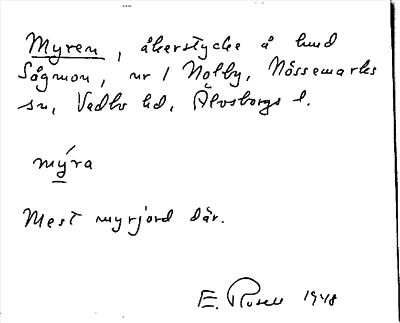 Myren, åkerstycke å hmd
Sågmon, nr 1 Nolby, Nössemarks
sn, Vedbo hd, Älvsborgs l.
mýra
Mest myrjord där.
E. Rosell 1948